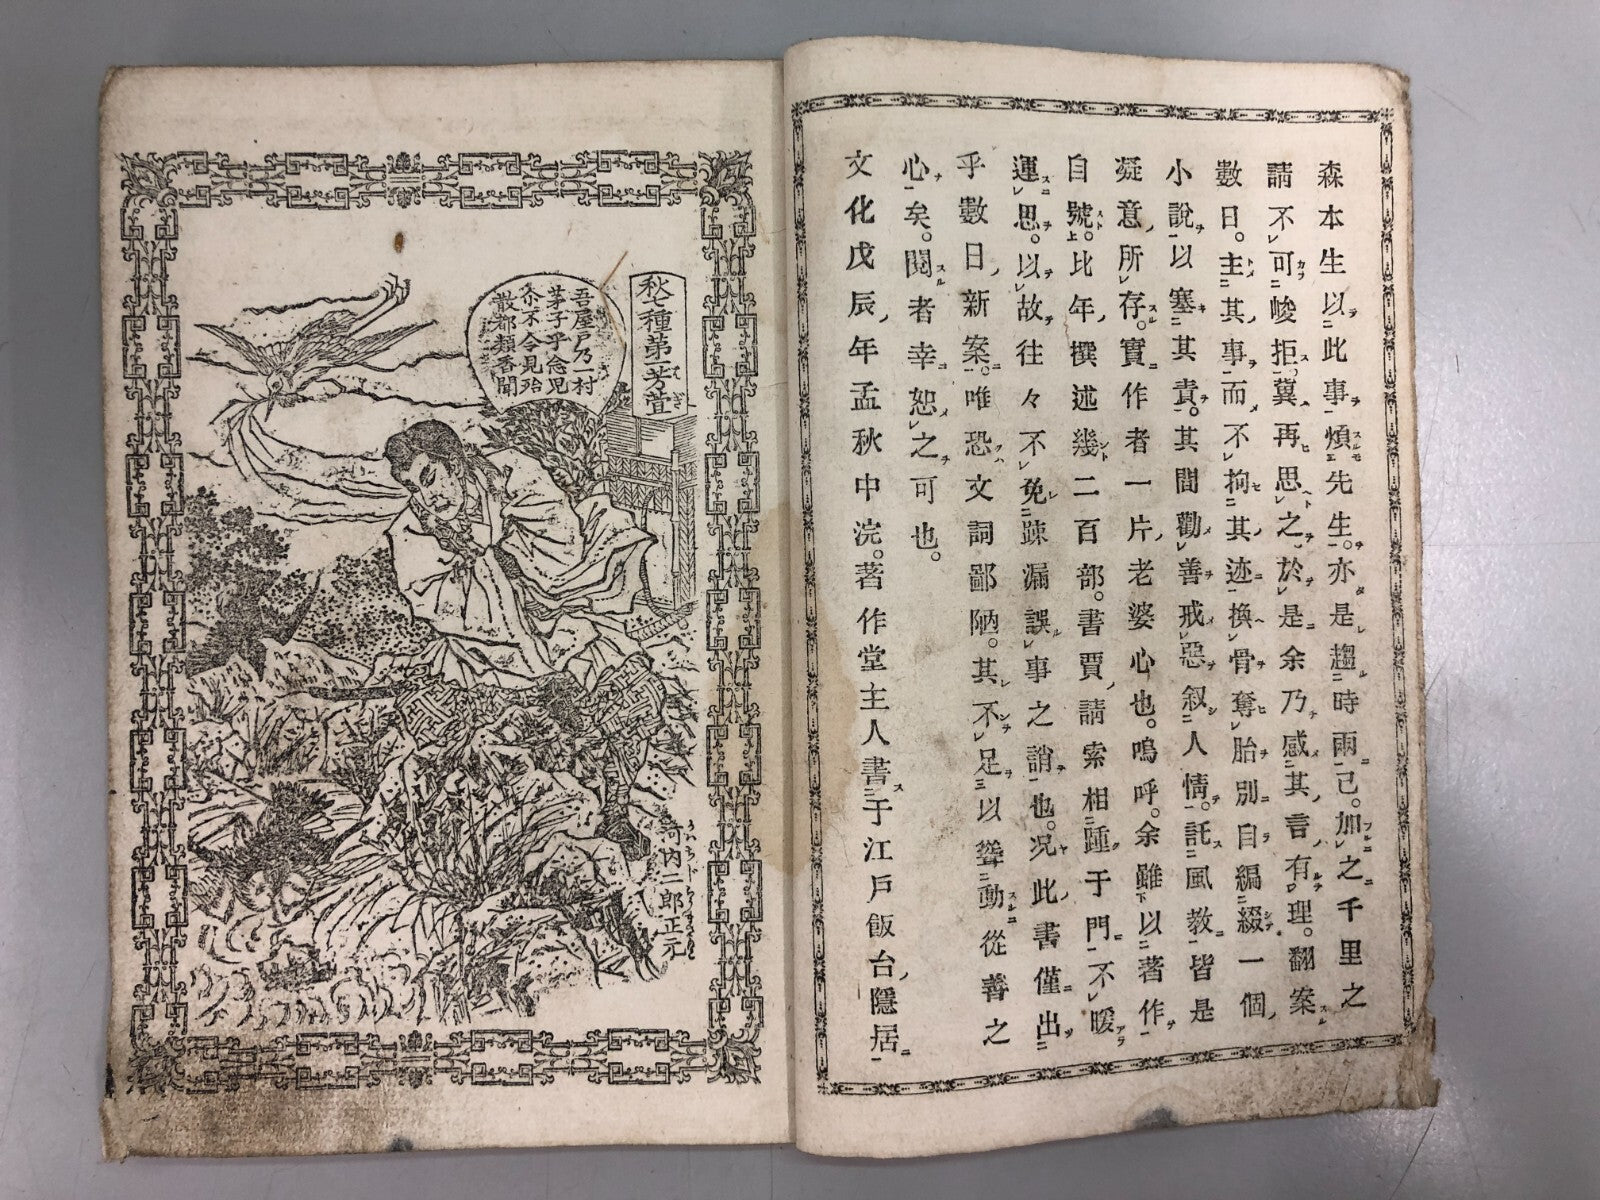 森本生以此事煩先生。亦是趨時雨己。加之千里之
請不可峻拒。冀再思之、於是余乃感其言有理。翻案
數日。主其事而不拘其迹換骨奪胎別自編綴一個
小說以塞其責。其間勸善戒惡叙人情。託風教皆是
凝意所存。實作者一片老婆心也。嗚呼。余雖以著作
自號。比年撰述幾二百部。書賈請索相踵于門不暖
運思。以故往々不免踈漏誤事之誚也。况此書僅出
乎數日新案。唯恐文詞鄙陋。其不足以聳動從善之
心矣。閱者幸恕之可也。
文化戊辰年孟秋中浣。著作堂主人書于江戶飯台隱居
秋七種第一芳萱
吾屋戸乃一村
茅子乎念児
尒不令見殆
散都類香聞
河内二郎正元